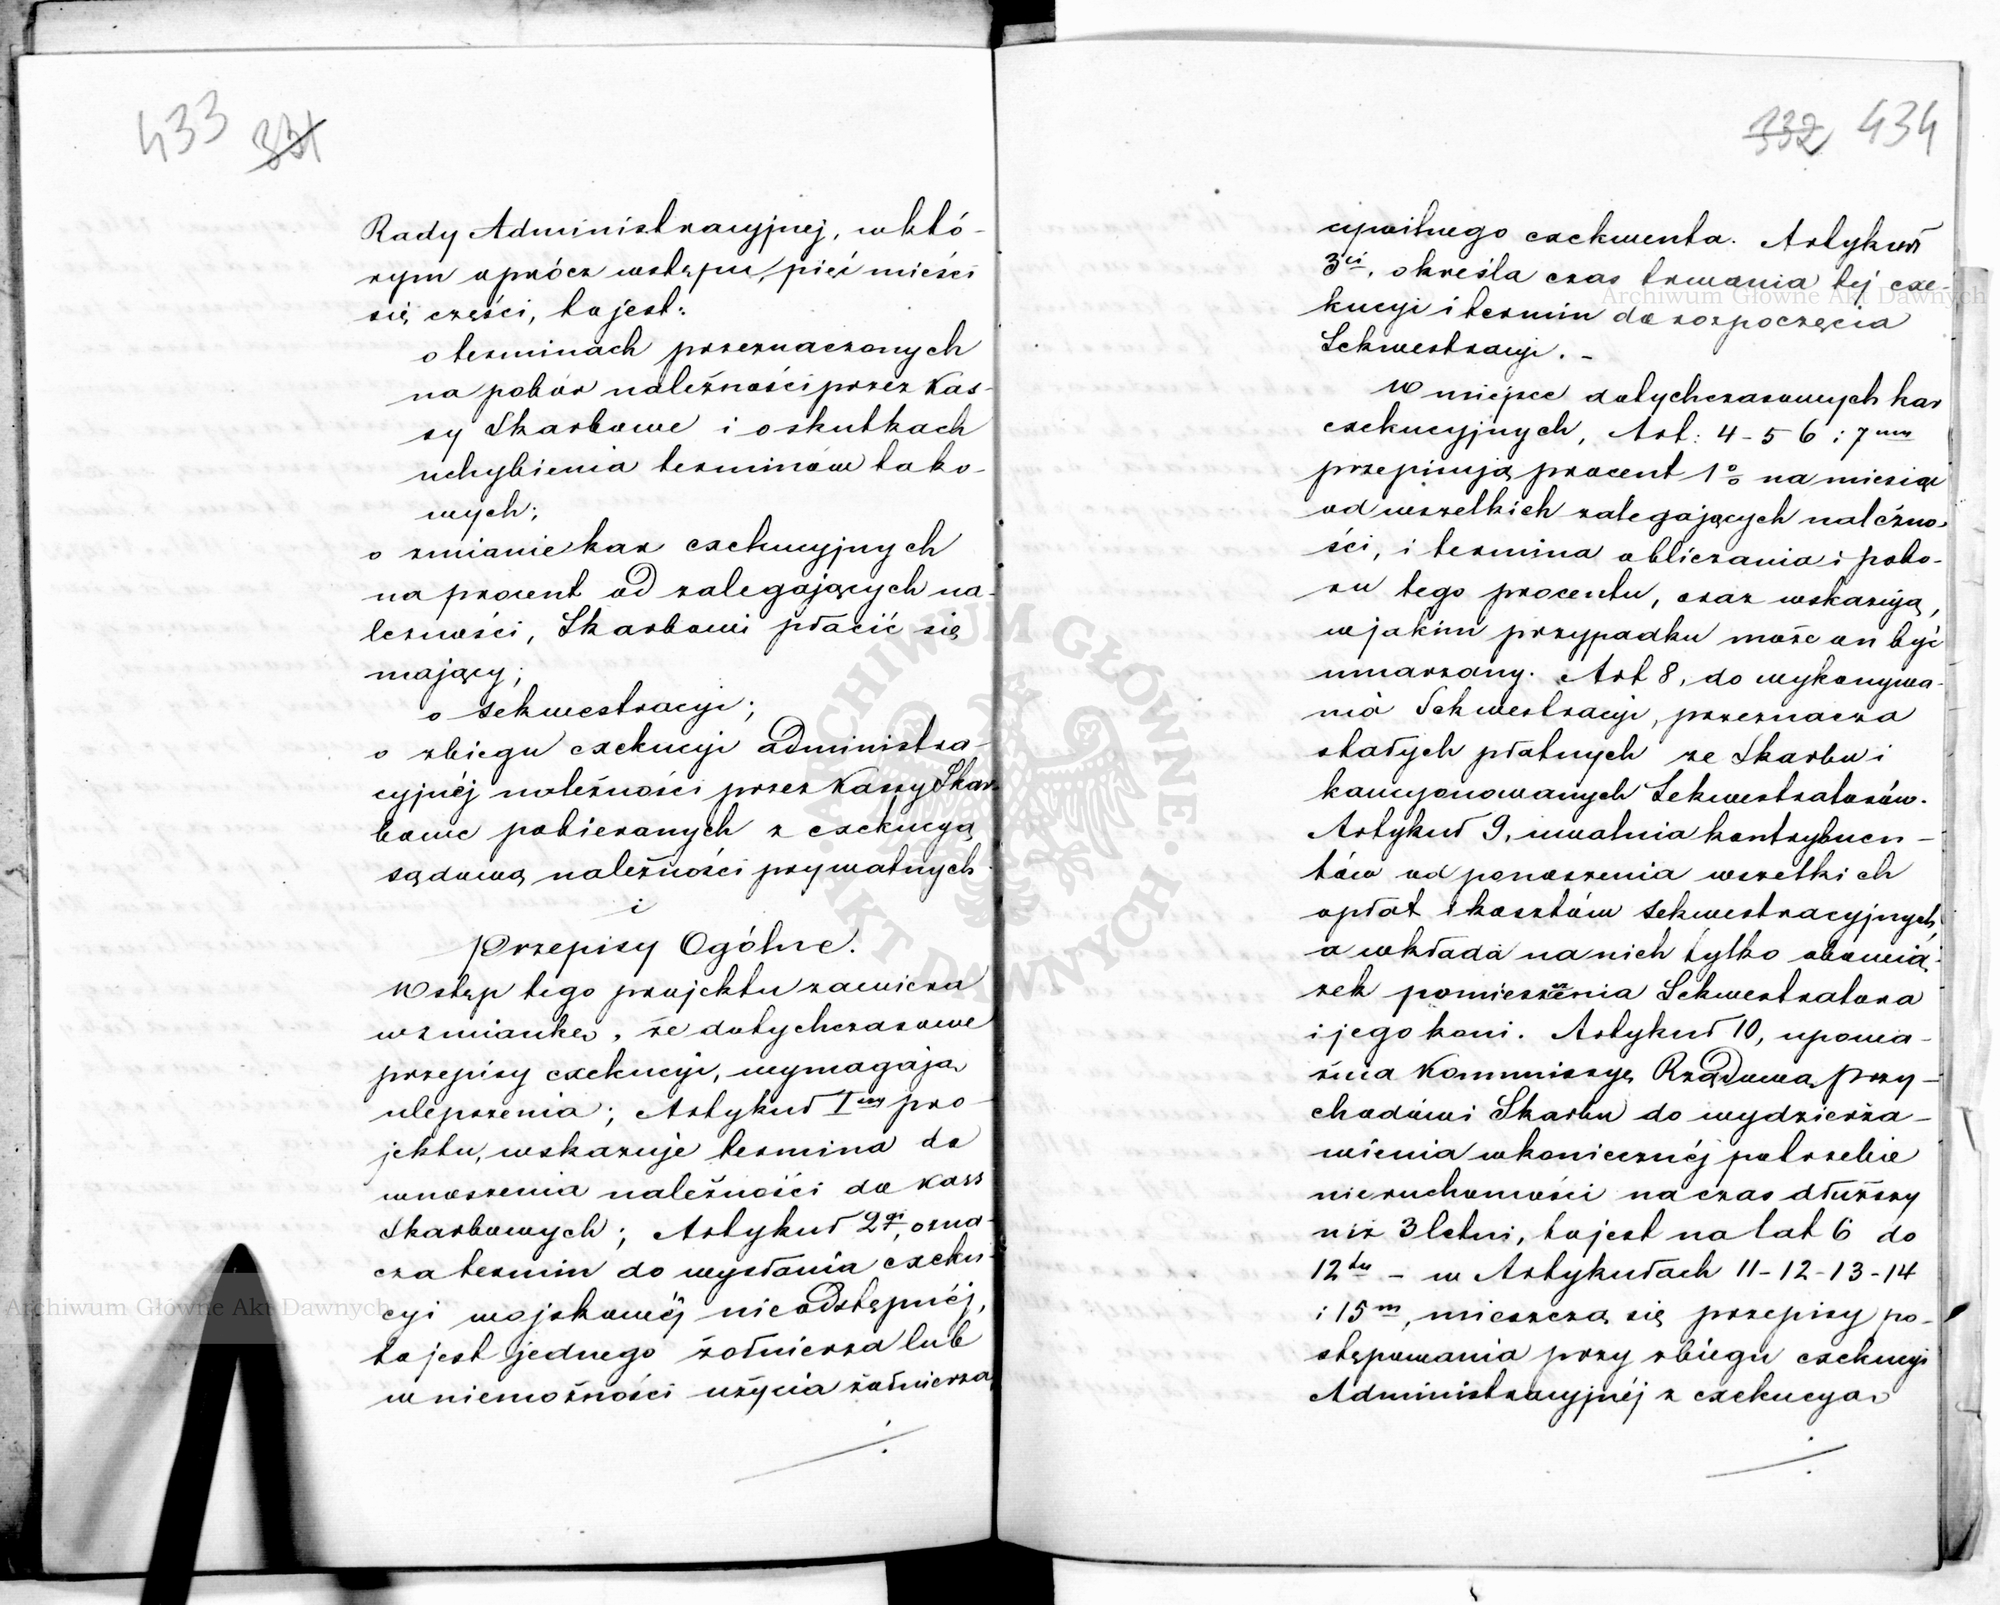 433 331
Rady Administracyjnej, w któ-
rym oprócz wstępu, pięć mieści
się części, to jest:
o terminach przeznaczonych
na pobór należności przez Kas-
sy Skarbowe i o skutkach
uchybienia terminów tako-
wych;
o zmianie kar exekucyjnych
na procent od zalegających na-
leżności, Skarbowi płacić się
mający;
o sekwestracyi;
o zbiegu exekucyi administra-
cyjnéj należności przez Kassy Skar-
bowe pobieranych z exekucyą
sądową należności prywatnych
i
Przepisy Ogólne.
Wstęp tego projektu zawiera
wzmiankę, że dotychczasowe
przepisy exekucyi, wymagają
ulepszenia; Artykuł I ws pro-
jektu, wskazuje termina do
wnoszenia należności do kass
Skarbowych; Artykuł 2gi, ozna-
cza termin do wysłania exeku-
cyi wojskowéj nieodstępnéj,
to jest jednego żołnierza lub
w niemożności użycia żołnierza,
332 434
cywilnego exekwenta. Artykuł
3ci, określa czas trwania téj exe-
kucyi i termin do rozpoczęcia
Sekwestracyi. -
W miejsce dotychczasowych kar
exekucyjnych, Art: 4 - 5 6 i 7my
przepisują procent 1% na miesiąc
od wszelkich zalegających należno-
ści, i termina obliczania i pobo-
ru tego procentu, oraz wskazują,
w jakim przypadku może on być
umarzony. Art 8, do wykonywa-
nia Sekwestracyi, przeznacza
stałych płatnych ze Skarbu i
kaucyonowanych Sekwestratorów.
Artykuł 9, uwalnia kontrybuen-
tów od ponoszenia wszelkich
opłat i kosztów sekwestracyjnych,
a wkłada na nich tylko obowią-
zek pomieszczenia Sekwestratora
i jego koni. Artykuł 10, upowa-
żnia Kommissyę Rządową Przy-
chodów i Skarbu do wydzierża-
wienia w koniecznéj potrzebie
nieruchomości na czas dłuższy
niż 3 letni, to jest na lat 6 do
12tu - w Artykułach 11 - 12 - 13 - 14
i 15m, mieszczą się przepisy po-
stępowania przy zbiegu exekucyi
Administracyjnéj z exekucyą
Archiwum Główne Akt Dawnych
Archiwum Główne Akt Dawnych
ARCHIWUM GŁÓWNE AKT DAWNYCH